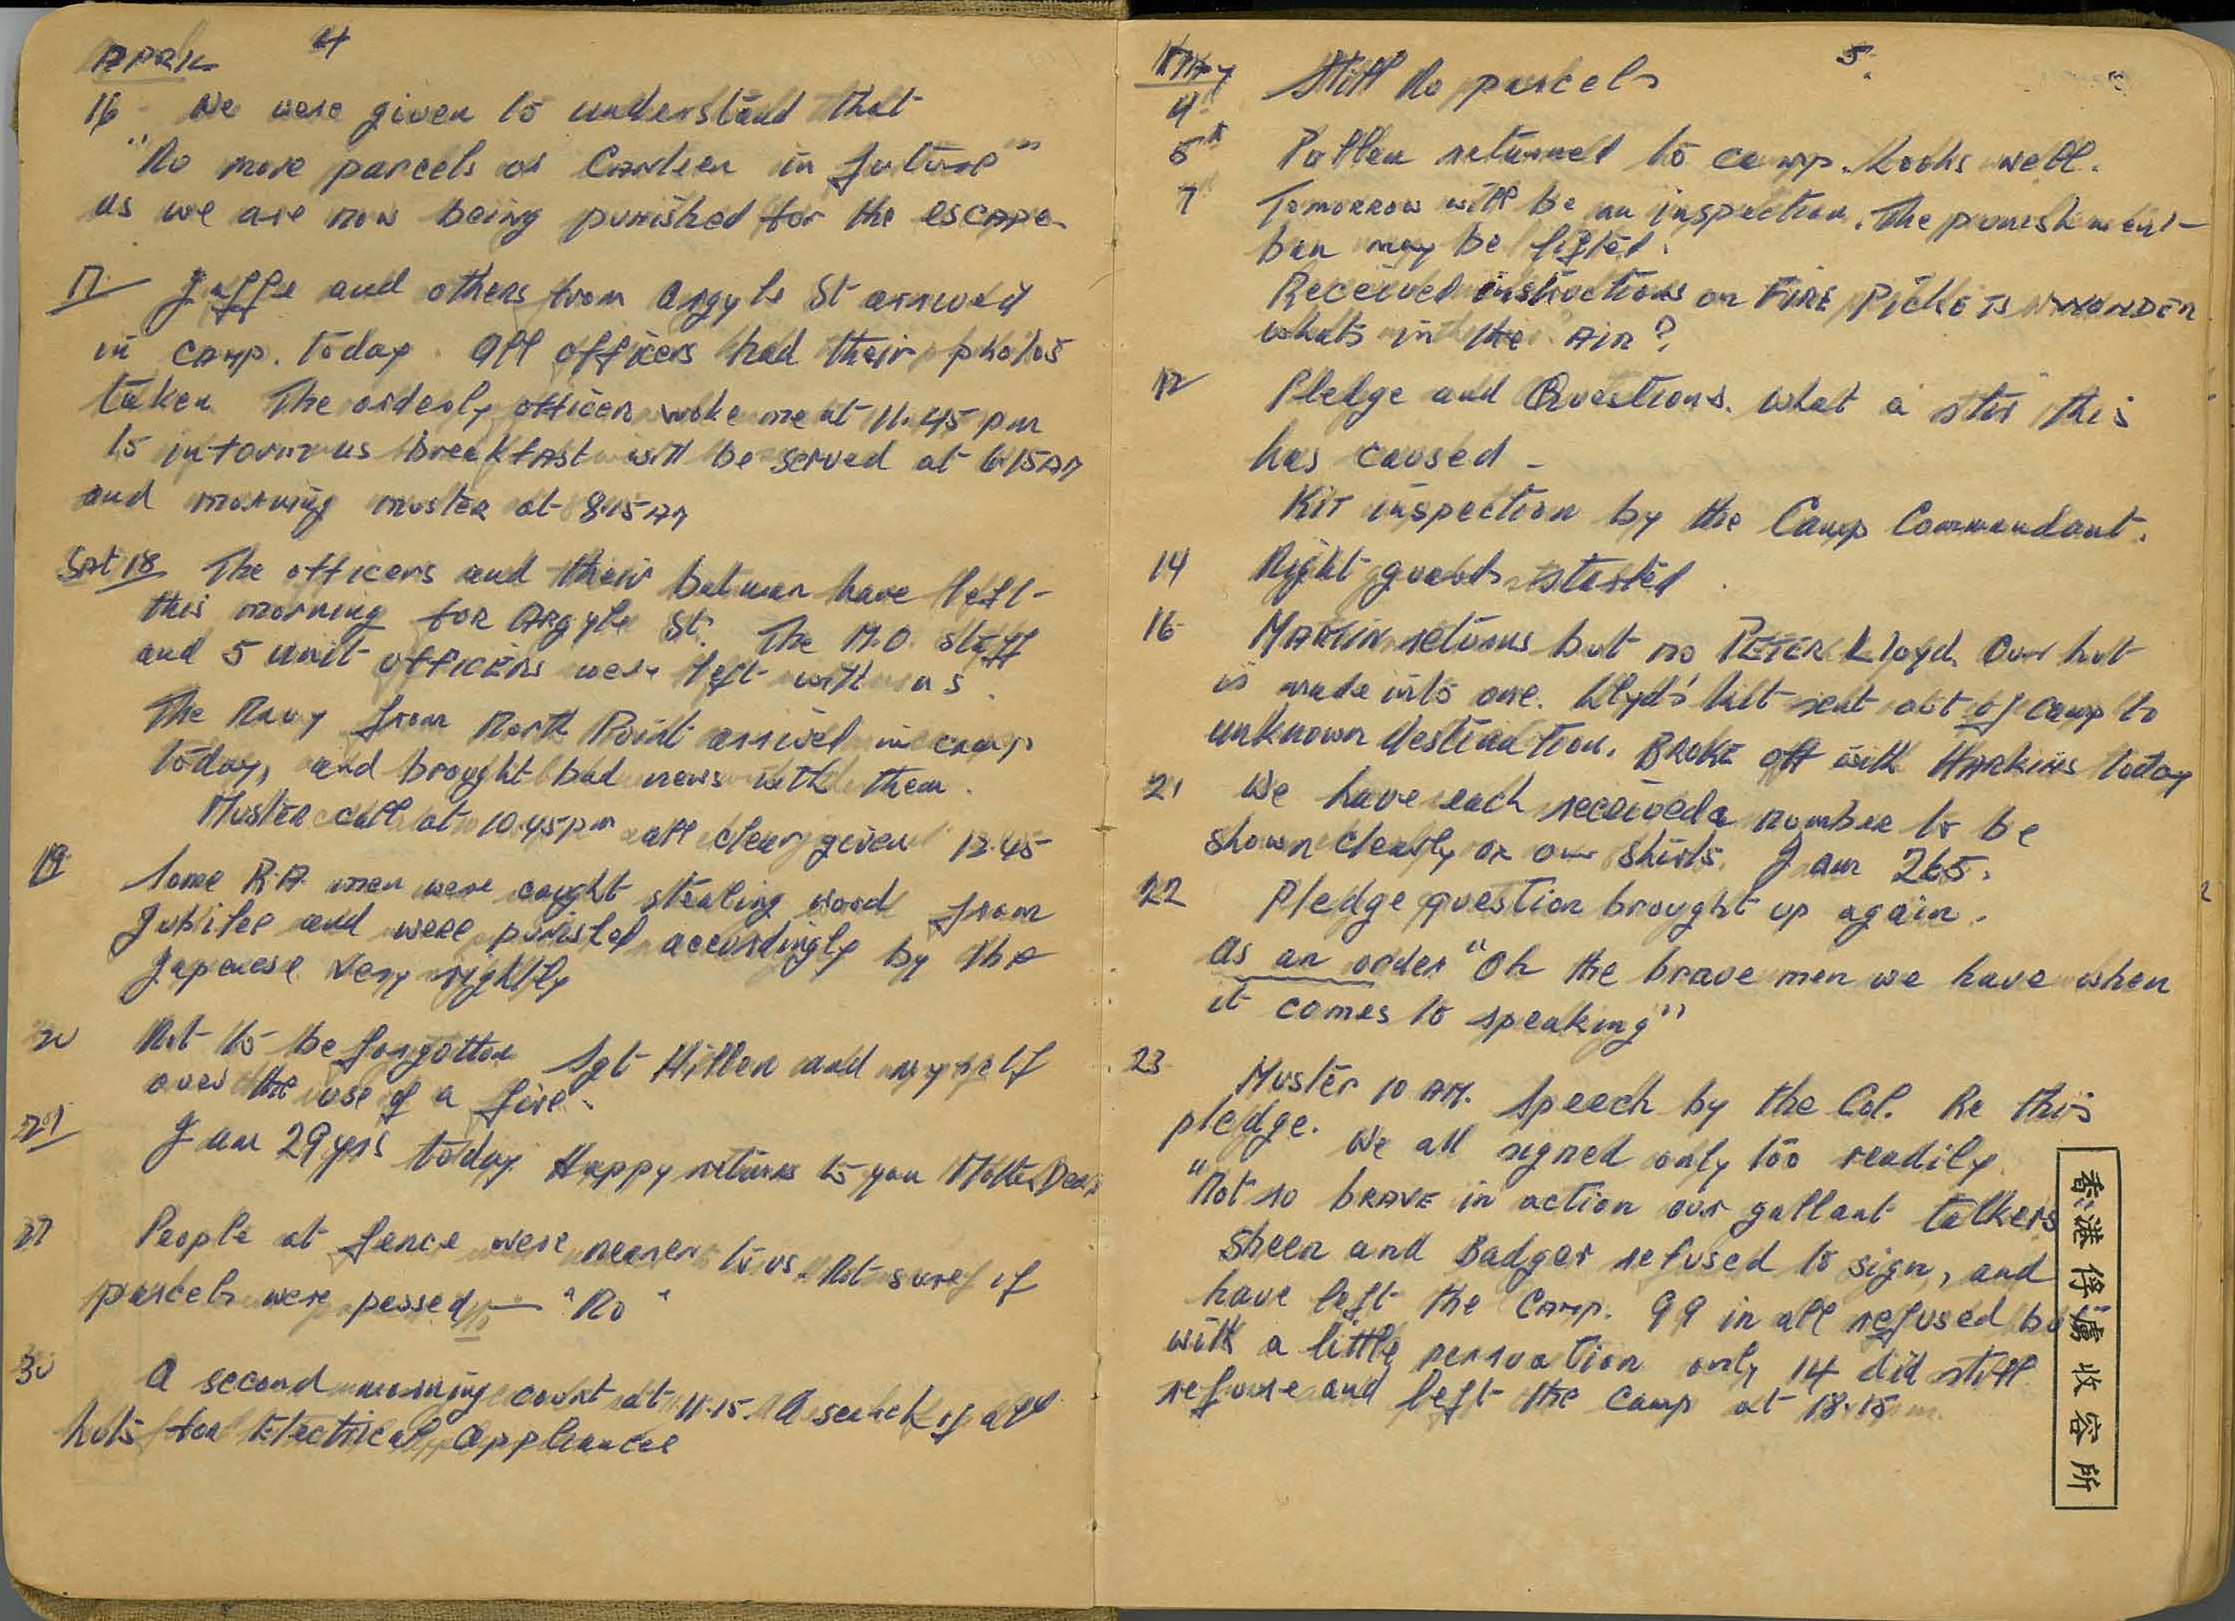 APRIL 4
16 We were given to understand that
"No more parcels or Canteen in future"
as we are now being punished for the escape.
17 Jaffe and others from Argyle St arrived
in camp. today. All officers had their photos
taken. The orderly officer woke me at 11.45 pm
to inform us breakfast will be served at 6.15 AM
and morning muster at 8.15 AM
Sat 18 The officers and their batman have left
this morning for Argyle St. The M.O. staff
and 5 unit officers were left with us.
The Navy from North Point arrived in camp
today, and brought bad news with them.
Muster call at 10.45 pm all clear given 12.45
19 Some R.A. men were caught stealing wood from
Jubilee and were punished accordingly by the
Japanese very rightly
20 Not to be forgotten Sgt Hillen and myself
over the use of a fire.
21 I am 29 yrs today Happy returns to you Mother Dear
27 People at fence were nearer to us. Not sure if
parcels were passed — "No"
30 A second morning count at 11.15. A search of all
huts for Electrical Appliances
MAY 5.
4 Still No parcels
5th returned to camp. Looks well.
7 Tomorrow will be an inspection. The punishment
ban may be lifted.
Received instructions on FIRE PICKETS WONDER
whats in the Air?
12 Pledge and Questions. What a stir this
has caused -
Kit inspection by the Camp Commandant.
14 Night guards started
16 MARTIN returns but no PETER Lloyd. Our hut
is made into one. Lloyd's kit sent out of camp to
unknown destination. BROKE off with Harkins today
21 We have each received a number to be
shown clearly on our shirts. I am 265.
22 Pledge question brought up again.
as an order "Oh the brave men we have when
it comes to speaking"
23 Muster 10 AM. Speech by the Col. Re this
pledge. We all signed only too readily
"Not so BRAVE in action our gallant talkers
Sheen and Badger refused to sign, and
have left the Camp. 99 in all refused but
with a little persuation only 14 did still
refuse and left the camp at 18.15
香港俘虜收容所